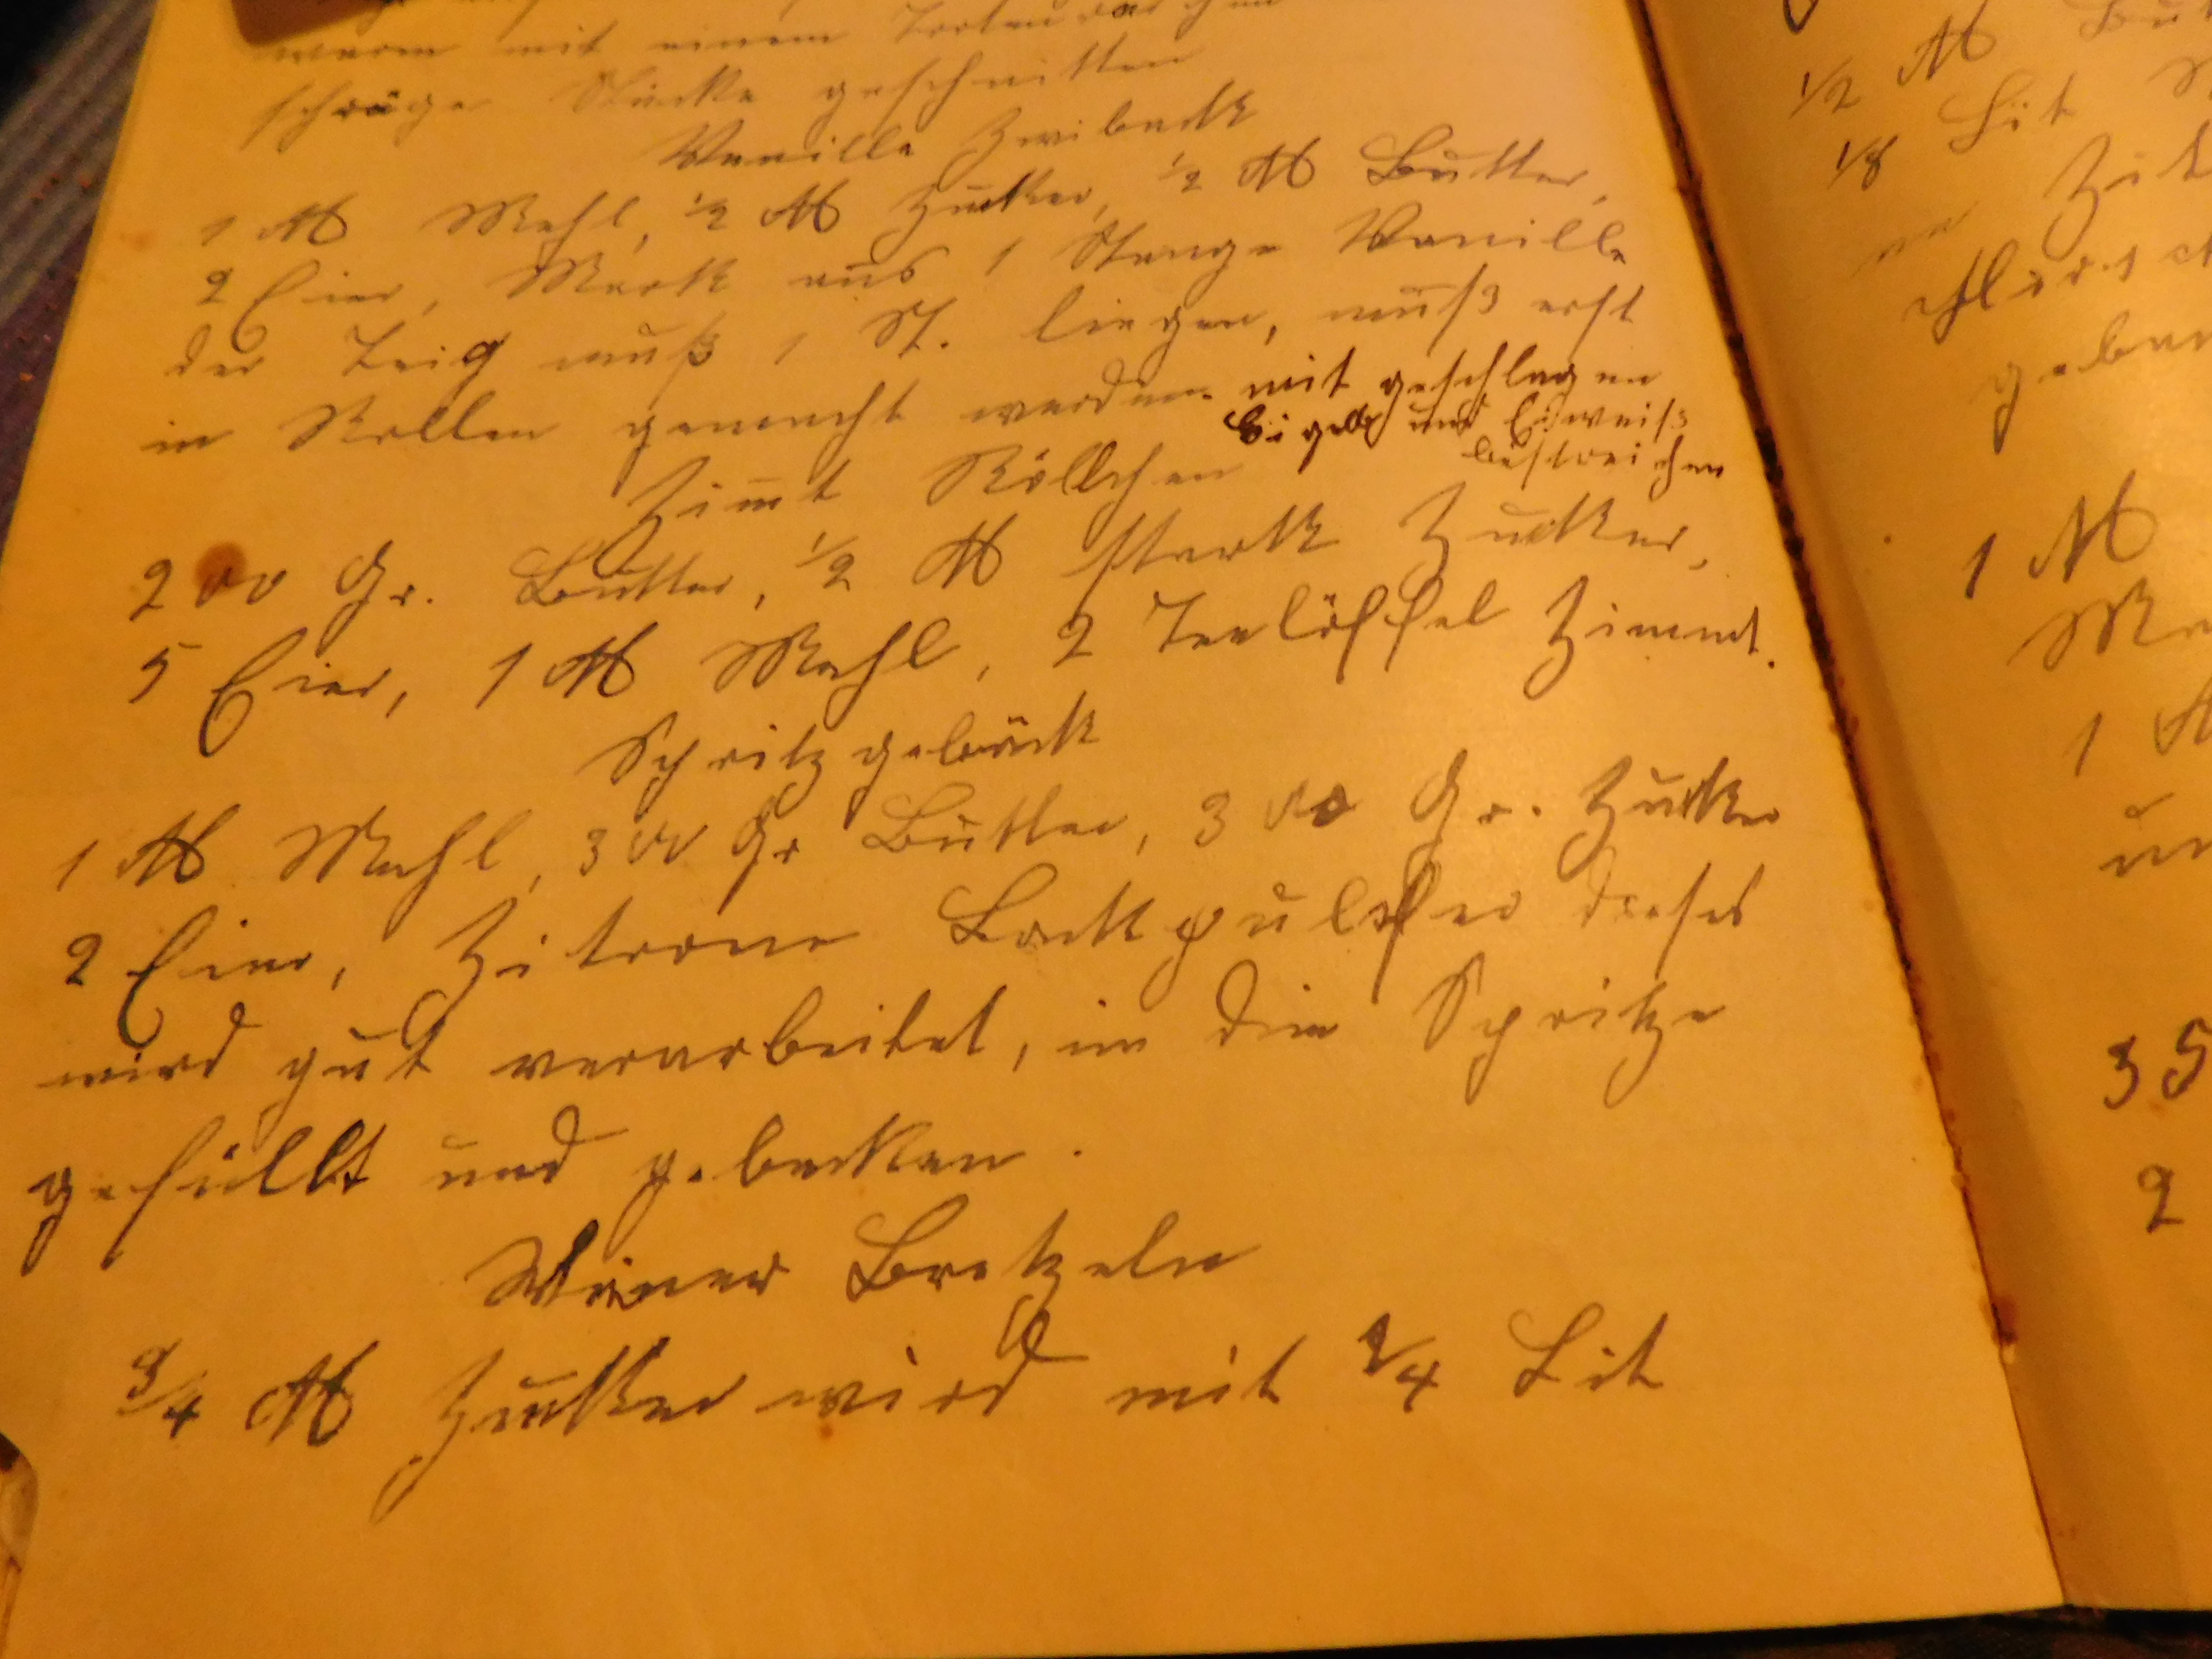 warm mit einem
schräge Stücke geschnitten
Vanille Zwiback
1 ℔ Mehl, ½ ℔ Zucker, ½ ℔ Butter,
2 Eier, Mark aus 1 Stange Vanille
der Teig muß 1 St. liegen, muß erst
in Rollen gemacht werden. mit geschlagen
Eigelb und Eiweiß
bestreichen
Zimt Röllchen
200 Gr. Butter, ½ ℔ stark Zucker,
5 Eier, 1 ℔ Mehl, 2 Teelöffel Zimmt.
Spritzgebäck
1 ℔ Mehl, 300 Gr Butter, 300 Gr. Zucker
2 Eier, Zitrone Backpulfer dieses
wird gut verarbeitet, in die Spritze
gefüllt und gebacken.
Wiener Bretzeln
3/4 ℔ Zucker wird mit 1/4 Lit
½ ℔
1/8 Lit
1 ℔
1
35
2